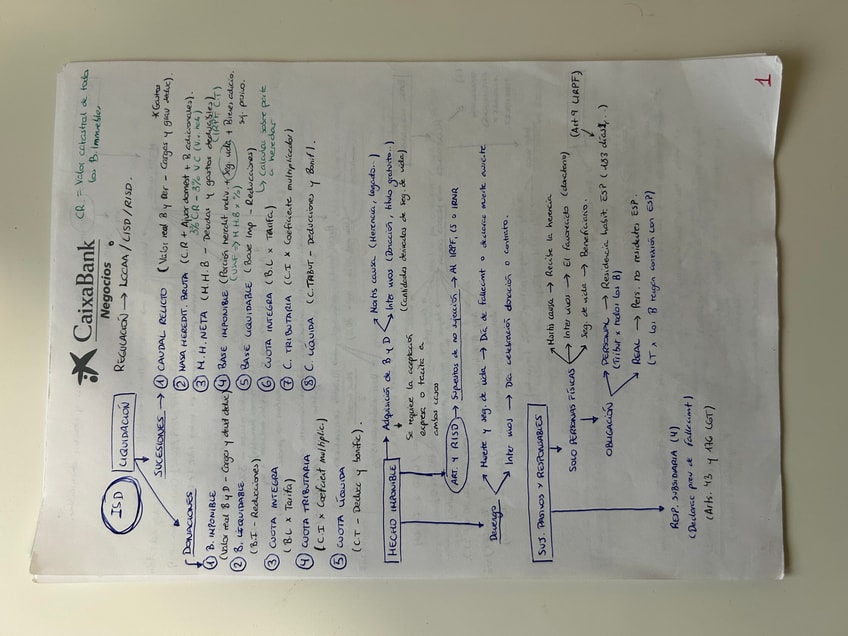 CaixaBank
Negocios
CR = Valor catastral de todos
los B. Inmuebles
ISD
REGULACIÓN → LCCAA / LISD / RISD.
LIQUIDACIÓN
SUCESIONES → ① CAUDAL RELICTO (Valor real B y Der - Cargas y grav deduc).
* Gastos
② MASA HEREDIT. BRUTA (C.R + Ajuar domést + B adicionales).
3% CR - 3% VC (Viv. hab)
③ M. H. NETA (M.H.B - Deudas y gastos deducibles)
④ BASE IMPONIBLE (Porción heredit indiv. + Seg. vida + Bienes adicio.
suj. pasivo.
⑤ BASE LIQUIDABLE (Base Imp - Reducciones)
↳ Calcular sobre parte
a heredar
⑥ CUOTA INTEGRA (B.L x Tarifa)
⑦ C. TRIBUTARIA (C.I x Coeficiente multiplicador)
⑧ C. LÍQUIDA (C.TRIBUT - Deducciones y Bonif).
DONACIONES
① B. IMPONIBLE
(Valor real B y D - Cargas y deud deduc)
② B. LIQUIDABLE
(B.I - Reducciones)
③ CUOTA INTEGRA
(B.L x Tarifa)
④ CUOTA TRIBUTARIA
(C.I x Coeficient multiplic)
⑤ CUOTA LÍQUIDA
(C.T - Deducc y bonific).
HECHO IMPONIBLE → Adquisición de B y D → Mortis causa (Herencia, legado..)
Inter vivos (Donación, título gratuito..)
(Cantidades derivadas de seg. de vida)
Se requiere la aceptación
expresa o tácita a
ambos casos
ART. 4 RISD → Supuestos de no sujeción → Al IRPF, IS o IRNR
Devengo → Muerte y seg. de vida → Día de fallecimt o declarac muerte
Inter vivos → Día celebración donación o contrato.
SUJ. PASIVOS Y RESPONSABLES
SOLO PERSONAS FÍSICAS → Mortis causa → Recibe la herencia
Inter vivos → El favorecido (donatario)
Seg. de vida → Beneficiario.
OBLIGACIÓN → PERSONAL → Residencia habit. ESP (183 días..)
(Art 9 LIRPF)
(Tribut x todos los B)
REAL → Pers. no residentes ESP.
(T x los B tengan conexión con ESP)
RESP. SUBSIDIARIA (4)
(Arts. 43 y 176 LGT)
1